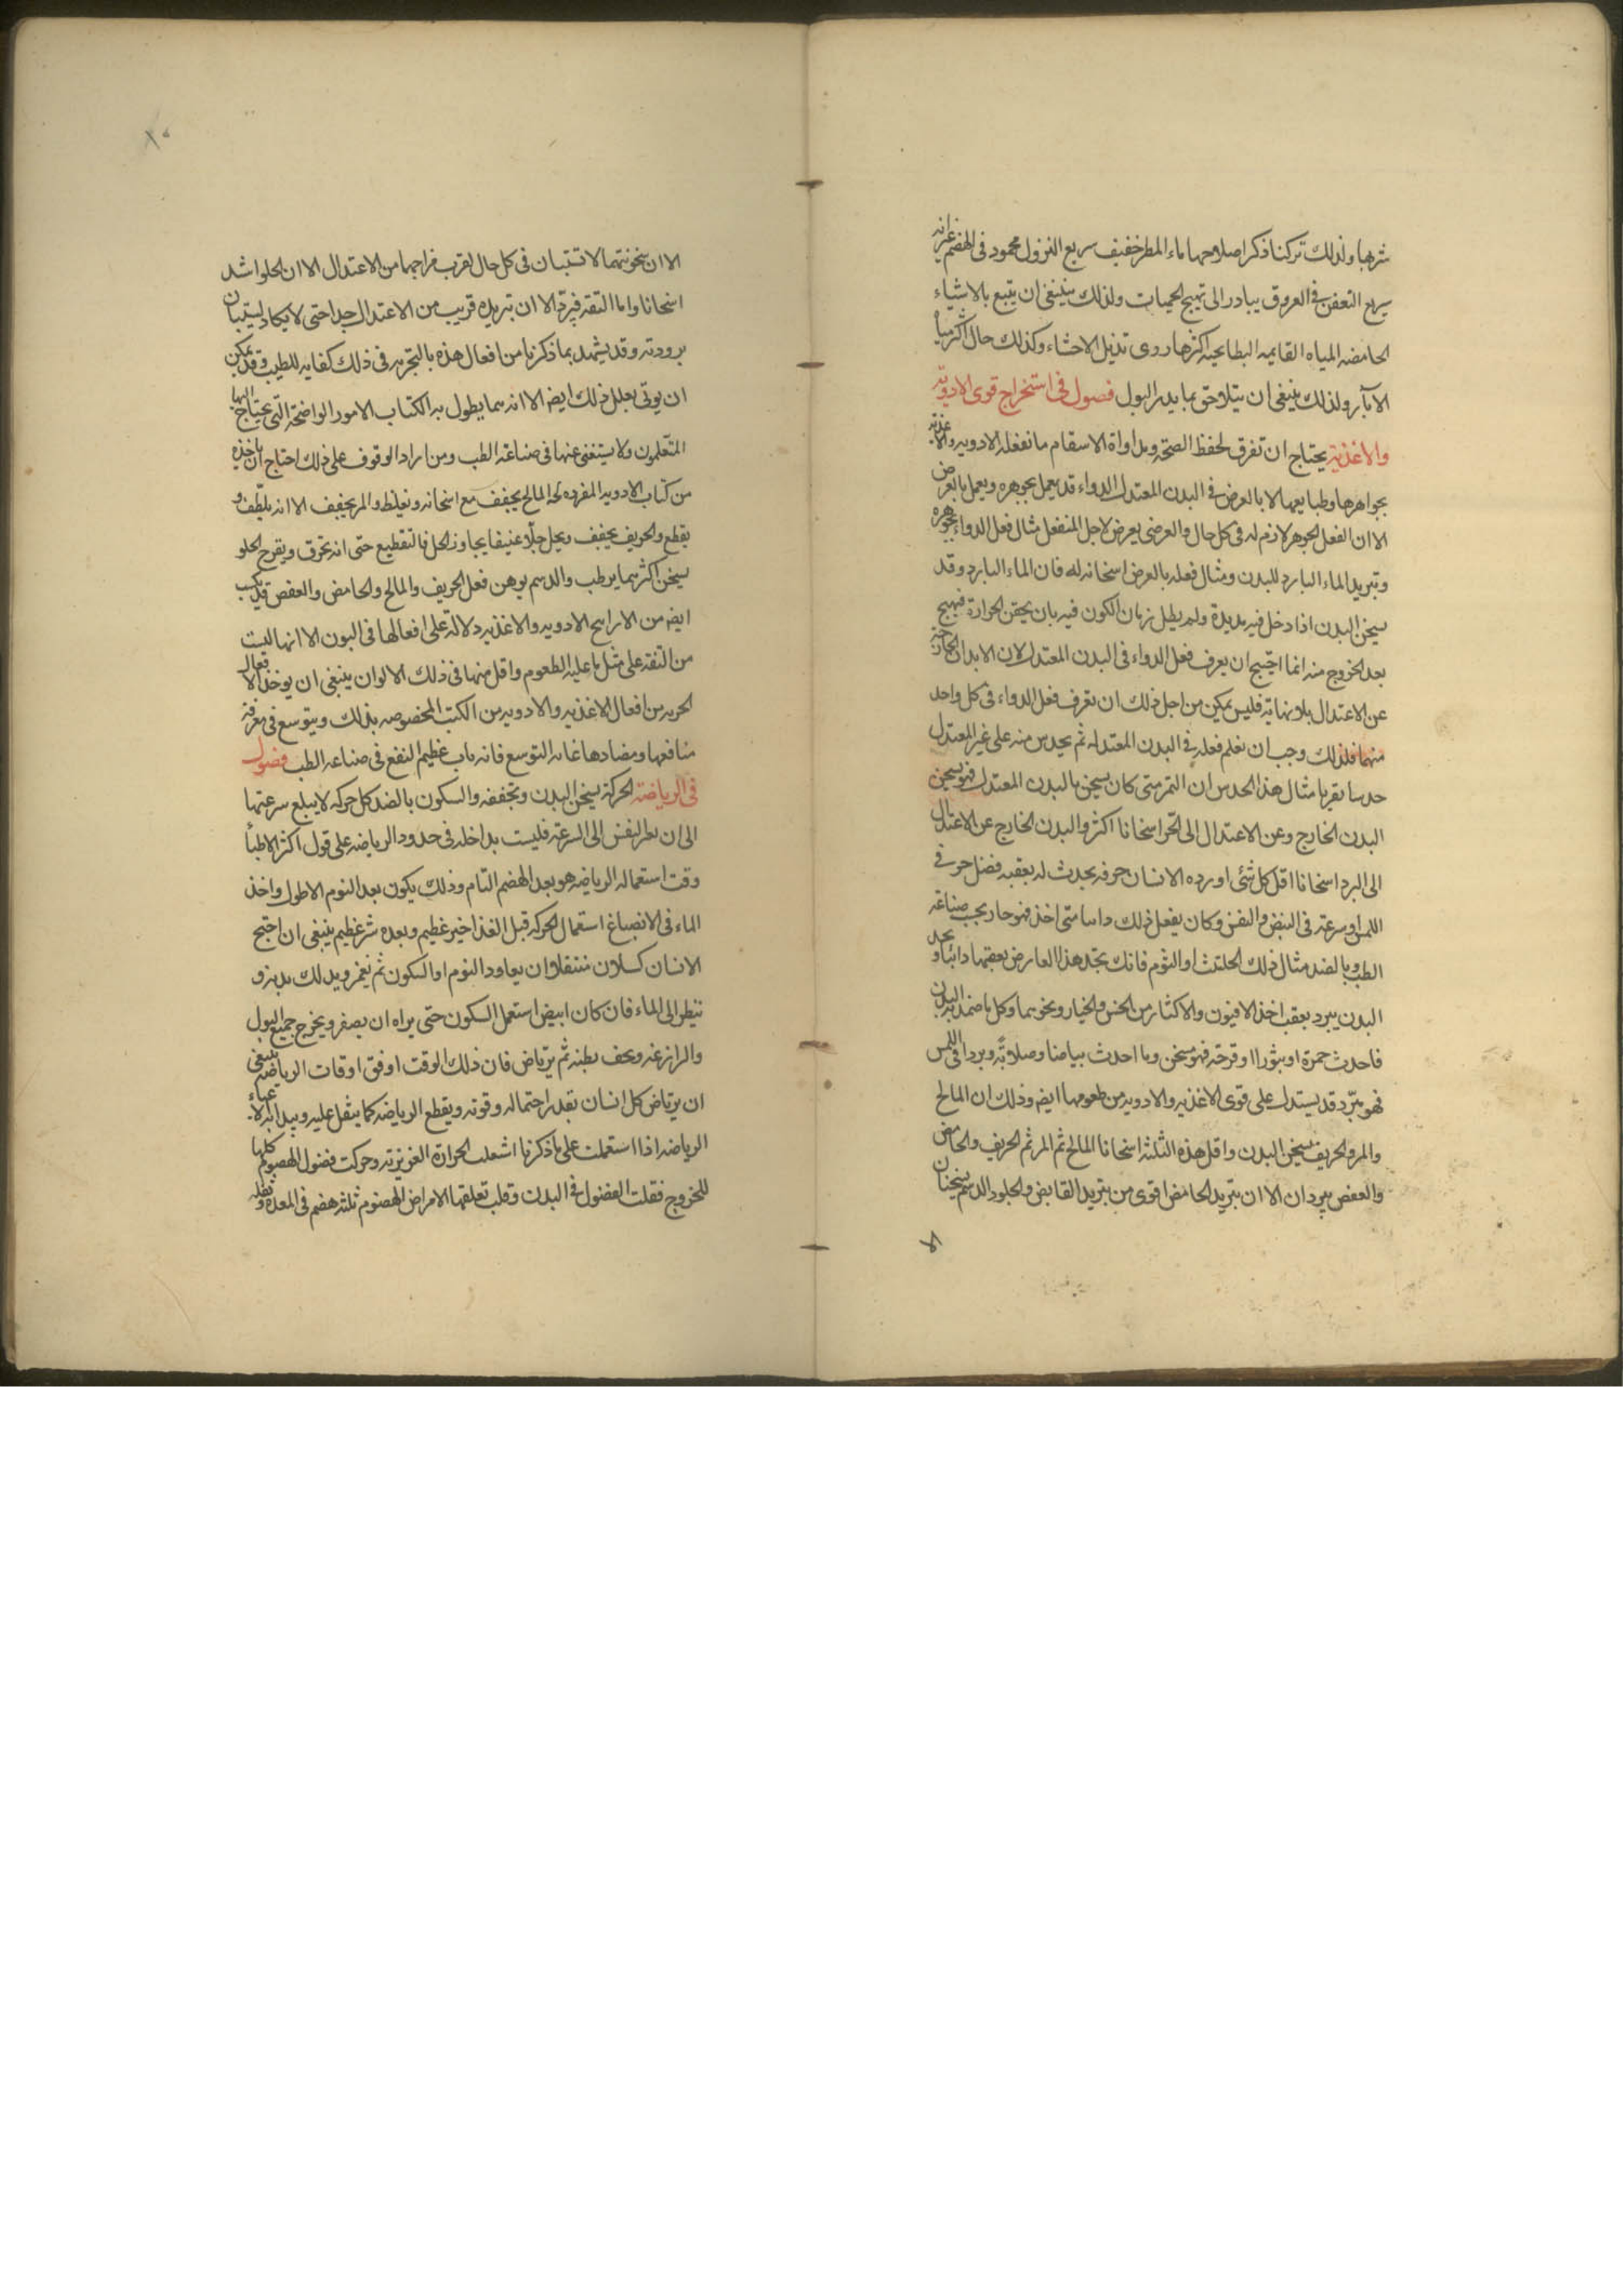 شربها ولذلك تركنا ذكر اصلاحها ماء المطر خفيف سريع النزول محمود فى الهضم غيرانه
سريع التعفن فى العروق يبادر الى تهيج الحميات ولذلك ينبغى ان يتبع بالاشياء
الحامضه المياه القايمه البطايحيه اكثرها ردى تذبل الاحشاء وكذلك حال اكثر مياه
الآبار ولذلك ينبغى ان يتلاحق بما يدر البول فصول فى استخراج قوى الادويه
والاغذيه يحتاج ان تفرق لحفظ الصحة ومداواة الاسقام ما تفعله الادويه والاغذيه
بجواهرها وطبايعها لا بالعرض فى البدن المعتدل الدواء قد يعمل بجوهره ويعمل بالعرض
الا ان الفعل الجوهر لازم له فى كل حال والعرضى يعرض لاجل المنفعل مثال فعل الدواء بجوهره
وتبريد الماء البارد للبدن ومثال فعله بالعرض اسخانه له فان الماء البارد وقد
يسخن البدن اذا دخل فيه مديدة ولم يطل زمان الكون فيه بان يحقن الحرارة فيهيج
بعد الخروج منه انما احتيج ان يعرف فعل الدواء فى البدن المعتدل لان الابدان الخارجة
عن الاعتدال بلا نهاية فليس يمكن من اجل ذلك ان تعرف فعل الدواء فى كل واحد
منهما فلذلك وجب ان نعلم فعله فى البدن المعتدله ثم يحدس منه على غير المعتدل
حدسا يقربا مثال هذا الحدس ان التمر متى كان يسخن بالبدن المعتدل فهو يسخن
البدن الخارج وعن الاعتدال الى الحر اسخانا اكثر والبدن الخارج عن الاعتدال
الى البرد اسخانا اقل كل شئ اورده الانسان جوفه يحدث له بعقبه فضل حر فى
اللمس او سرعة فى النبض والنفس وكان يفعل ذلك دايما متى اخذ فهو حار بحسب صناعة
الطب وبالضد مثال ذلك الحلتيت او الثوم فانك تجد هذا العارض بعقبها دائما وتجد
البدن يبرد بعقب اخذ الافيون والاكثار من الخس والخيار ونحوهما وكل ما ضمد به البدن
فاحدث حمرة او بثورا او قرحة فهو مسخن وما احدث بياضا وصلابة وبردا فى اللمس
فهو مبرد قد يستدل على قوى الاغذيه والادويه من طعومها ايضا وذلك ان المالح
والمر والحريف يسخن البدن واقل هذه الثلثه اسخانا المالح ثم المر ثم الحريف والحامض
والعفص يبردان الا ان تبريد الحامض اقوى من تبريد القابض والحلو والدسم يسخنان
الا
١٠
الا ان سخونتهما لا تستبان فى كل حال لقرب مزاجهما من الاعتدال الا ان الحلو اشد
اسخانا واما التفه فيبرد الا ان تبريده قريب من الاعتدال جدا حتى لا يكاد ليستبان
برودته وقد يشهد بما ذكرنا من افعال هذه بالتجربه فى ذلك كفايه للطيب وقد يمكن
ان يوتى بعلل ذلك ايضا الا انه مما يطول به الكتاب الامور الواضحة التى يحتاج اليها
المتعلمون ولا يستغنى عنها فى صناعة الطب ومن اراد الوقوف على ذلك احتاج ان ياخذه
من كتاب الادويه المفرده له المالح يجفف مع اسخانه ويغلظ والمر يجفف الا انه يلطف و
يقطع والحريف يجفف ويحل حلا عنيفا يجاوز الحل فالتقطيع حتى انه يحرق ويقرح الحلو
يسخن اكثر مما يرطب والدسم يوهن فعل الحريف والمالح والحامض والعفص قد يكسب
ايضا من الاراييح الادويه والاغذيه دلالة على افعالها فى البون الا انها ليست
من الثقة على مثل ما عليه الطعوم واقل منها فى ذلك الالوان ينبغى ان يوخذ الافعال
الحريه من افعال الاغذيه والادويه من الكتب المخصوصه بذلك ويتوسع فى معرفة
منافعها ومضادها غايه التوسع فانه باب عظيم النفع فى صناعه الطب فصول
فى الرياضة الحركة يسخن البدن وتجففه والسكون بالضد كل حركه لا يبلغ سرعتها
الى ان يضطر النفس الى السرعة فليست بداخله فى حدود الرياضه على قول اكثر الاطبا
وقت استعماله الرياضه هو بعد الهضم التام وذلك يكون بعد النوم الاطول واخذ
الماء فى الانصباغ استعمال الحركه قبل الغذا خير عظيم وبعده شر عظيم ينبغى ان احتيج
الانسان كسلان متثقلا وان يعاود النوم او السكون ثم يغمز ويدلك بدنه و
ينظر الى الماء فان كان ابيض استعمل السكون حتى يراه ان يصفر ويخرج جميع البول
والبراز عنه ويخف بطنه ثم يرتاض فان ذلك الوقت اوفق اوقات الرياضه ينبغى
ان يرتاض كل انسان بقدر احتماله وقوته ويقطع الرياضه كما يثقل عليه ويبدا به الاعياء
الرياضه اذا استعملت على ما ذكرنا اشعلت الحرارة الغريزية وحركت فضول الهضوم كلها
للخروج فقلت الفضول فى البدن وقلت تعلقها الامراض الهضوم ثلثه هضم فى المعدة وثفله